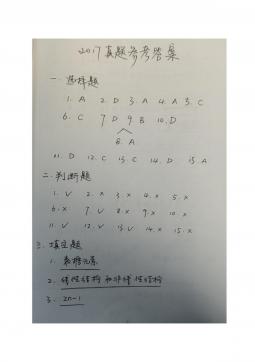 2017真题参考答案
一.选择题
1. A 2. D 3. A 4. A 5. C
6. C 7. D 9. B 10. D
8. A
11. D 12. C 13. C 14. D 15. A
二.判断题
1. √ 2. × 3. × 4. × 5. ×
6. × 7. √ 8. × 9. × 10. ×
11. √ 12. √ 13. √ 14. × 15. ×
三.填空题
1. 数据元素
2. 线性结构和非线性结构
3. 2n-1